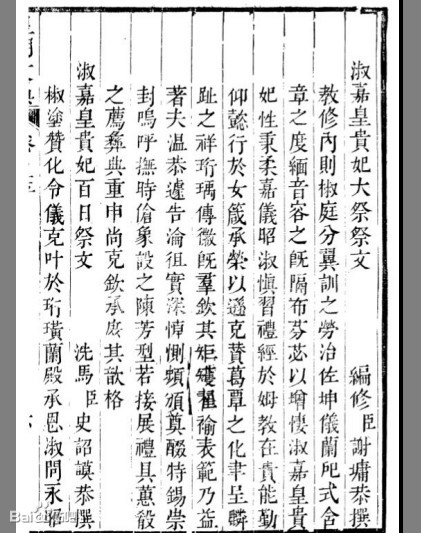 淑嘉皇貴妃大祭祭文 編修臣謝墉恭撰
敎修內則椒庭分翼訓之勞治佐坤儀蘭戺式含
章之度緬音容之旣隔布芬苾以增悽淑嘉皇貴
妃性秉柔嘉儀昭淑愼習禮經於姆敎在貴能勤
仰懿行於女箴承榮以遜克贊葛覃之化聿呈麟
趾之祥珩瑀傳徽旣羣欽其矩矱褕表範乃益
著夫温恭遽告淪徂實深悼惻頻頒奠醊特錫崇
封嗚呼撫時愴象設之陳芳型若接展禮具蕙殽
之薦彝典重申尚克欽承庶其歆格
淑嘉皇貴妃百日祭文 洗馬臣史詒謨恭撰
椒塗贊化令儀克叶於珩璜蘭殿承恩淑問永